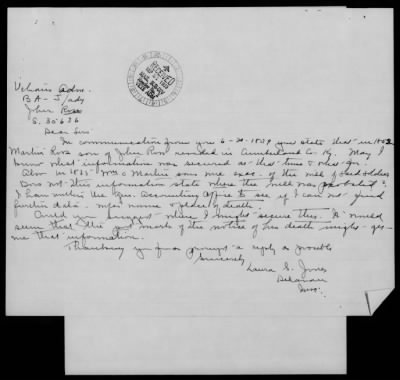 Vetrans Adm.
BA-J/ady
John Ross
S. 30 6 36
Dear Sirs
In communication from you 6-20-1939 you state that in 1852
Martin Ross son of John Ross resided in Cumberland Co. Ky. May I
know what information was secured at that time &
Also in 1835 Wm & Martin sons were exes. of the will of said soldier
Does not this information state where the will was probated?
I have written the Gen. Accounting Office to see if I can not find
further data. wife's name & date of death.
Could you suggest where I might secure this. It would
seem that the notice of his death might give
me that information.
Thanking you for as prompt a reply as possible
Sincerely
Laura S. Jones